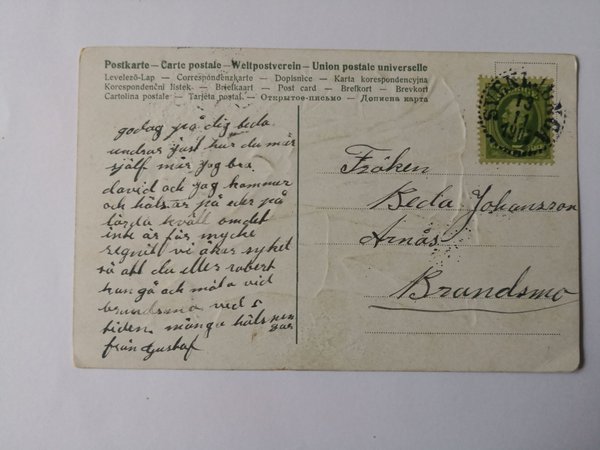 Postkarte — Carte postale — Weltpostverein — Union postale universelle
Levelező-Lap — Correspondenzkarte — Dopisnice — Karta korespondencyjna
Korespondenční lístek — Briefkaart — Post card — Brefkort — Brevkort
Cartolina postale — Tarjeta postal — Открытое-письмо — Дописна карта
godag på dig beda
undrar just hur du mår
sjelf mår jag bra
david och jag kommer
och hälsar på eder på
lörda kväll omdet
inte är för myche
regnit vi åker sykel
så att du eller robert
kan gå och möta vid
ved 5
tiden många hälsningar
från Gustaf
Fröken
Beda Johansson
Arnäs
Brandsmo